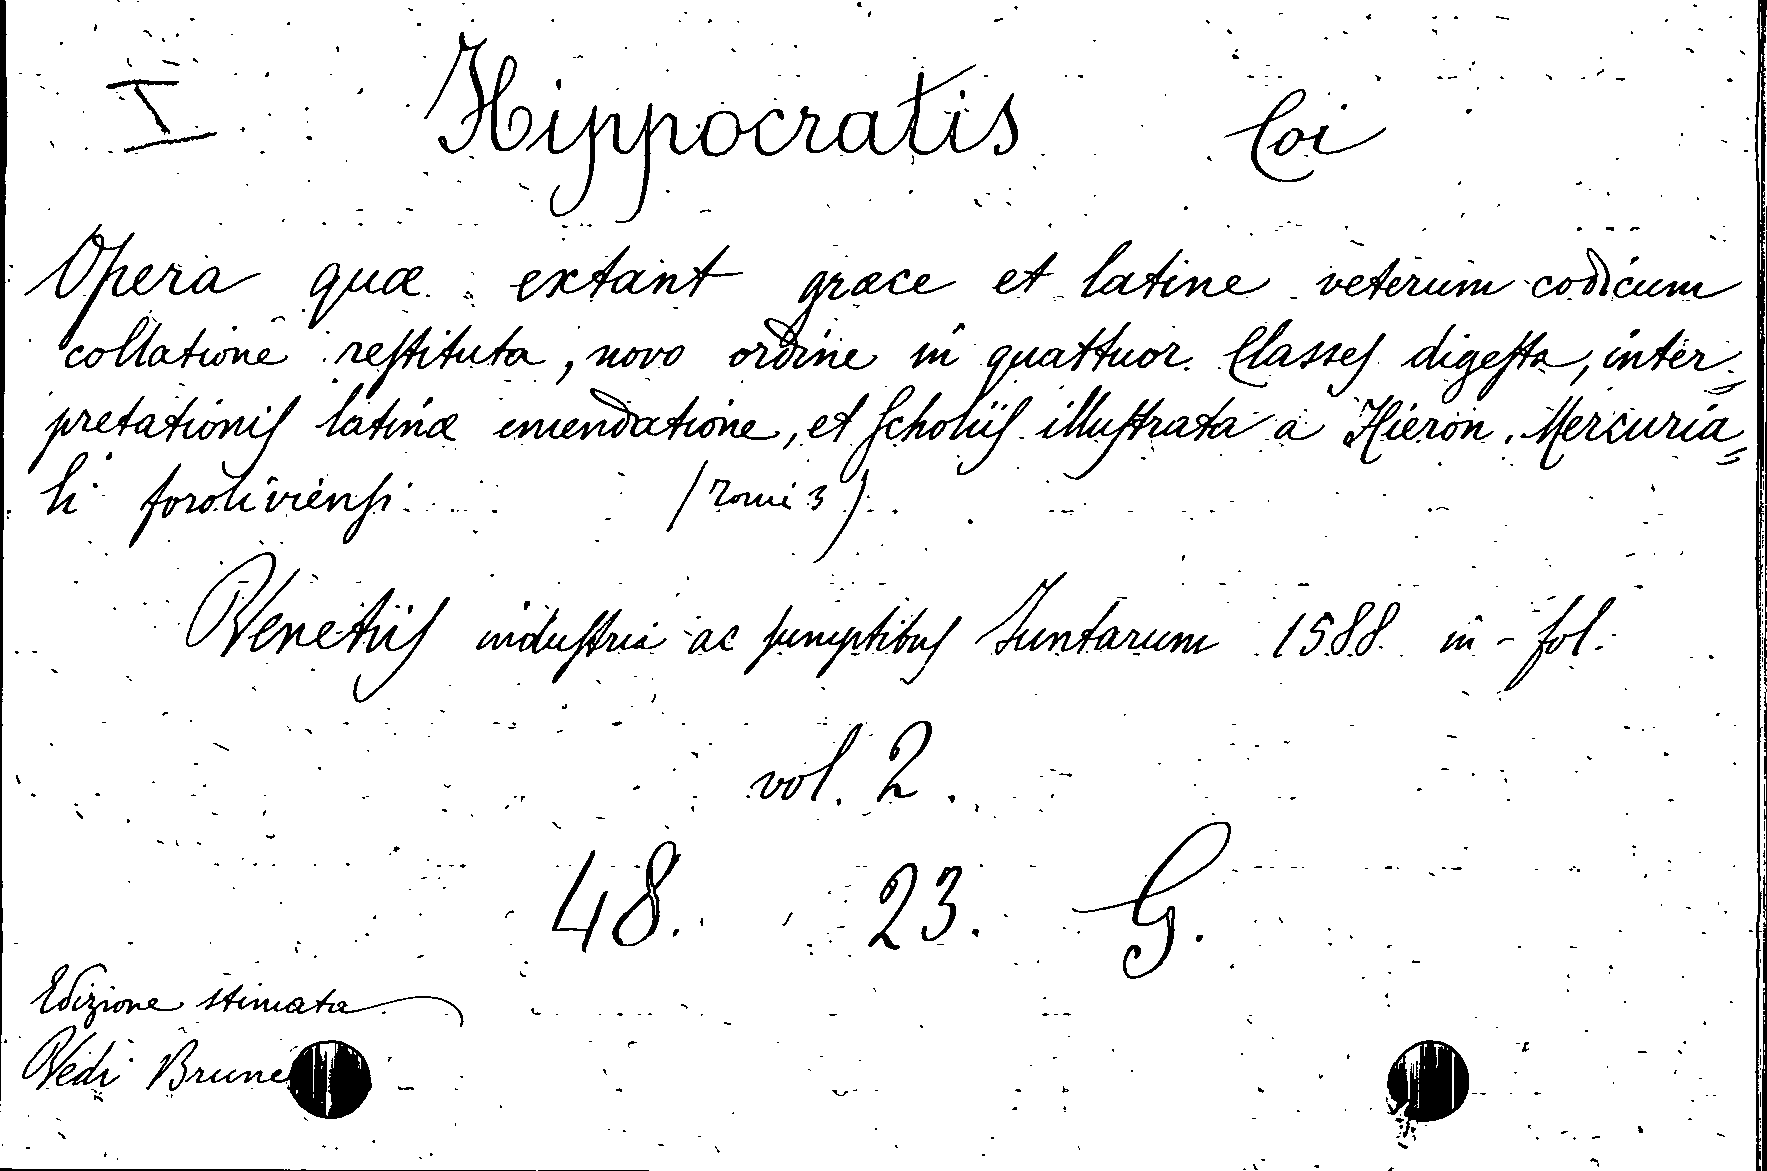 I Hippocratis Coi
Opera quæ extant græce et latine veterum codicum
collatione restituta, novo ordine in quattuor Classes digesta, inter=
pretationis latinæ emendatione, et scholiis illustrata a Hieron. Mercuria=
li foroliviensi (Tomi 3)
Venetiis industria ac sumptibus Juntarum 1588 in-fol.
vol. 2.
48. 23. G.
Edizione stimata
Vedi Brune